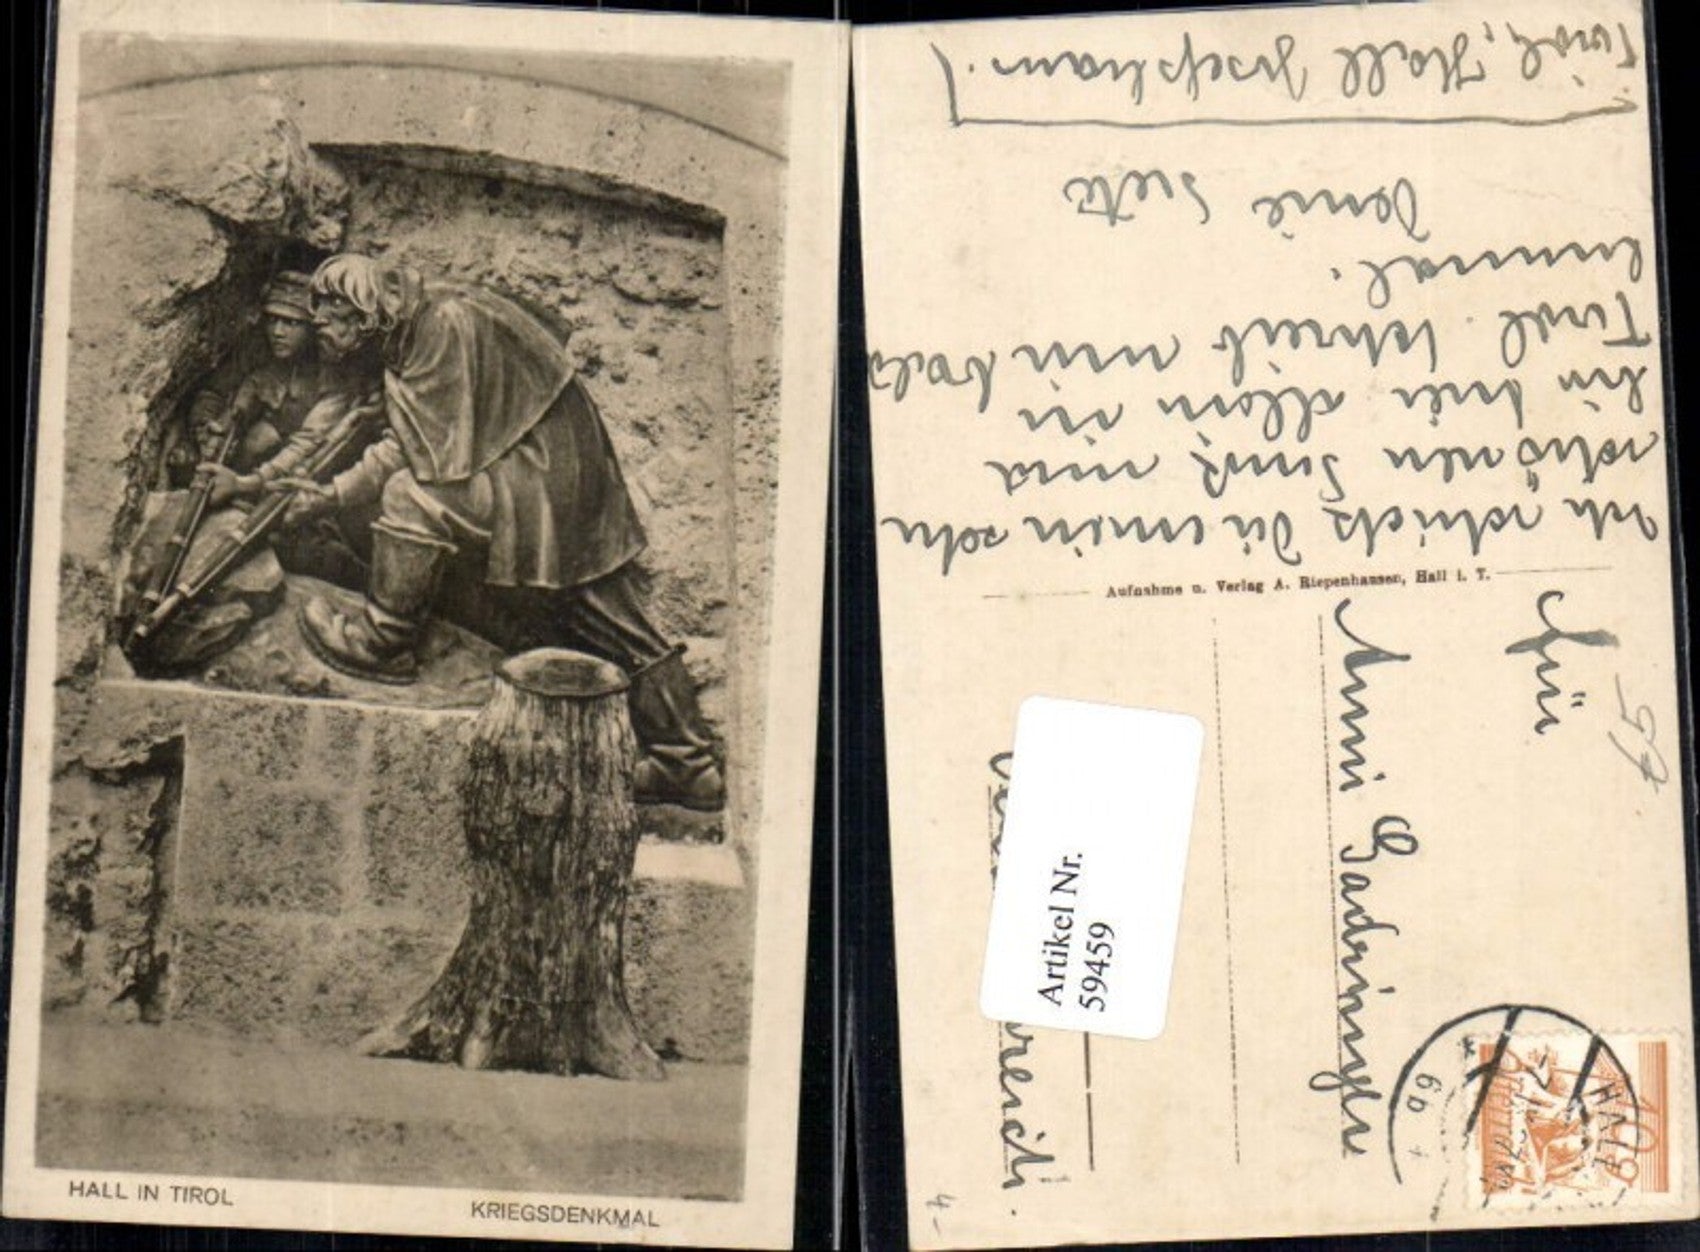 HALL IN TIROL
KRIEGSDENKMAL
Ich schick Dir einen sehr
schönen Gruß und
bin hier allein in
Tirol. Schreib mir bald
einmal.
Deine
Tirol, Hall Josefsham.
Aufnahme u. Verlag A. Riepenhausen, Hall i. T.
Anni
65
Artikel Nr.
59459
HALL
4-